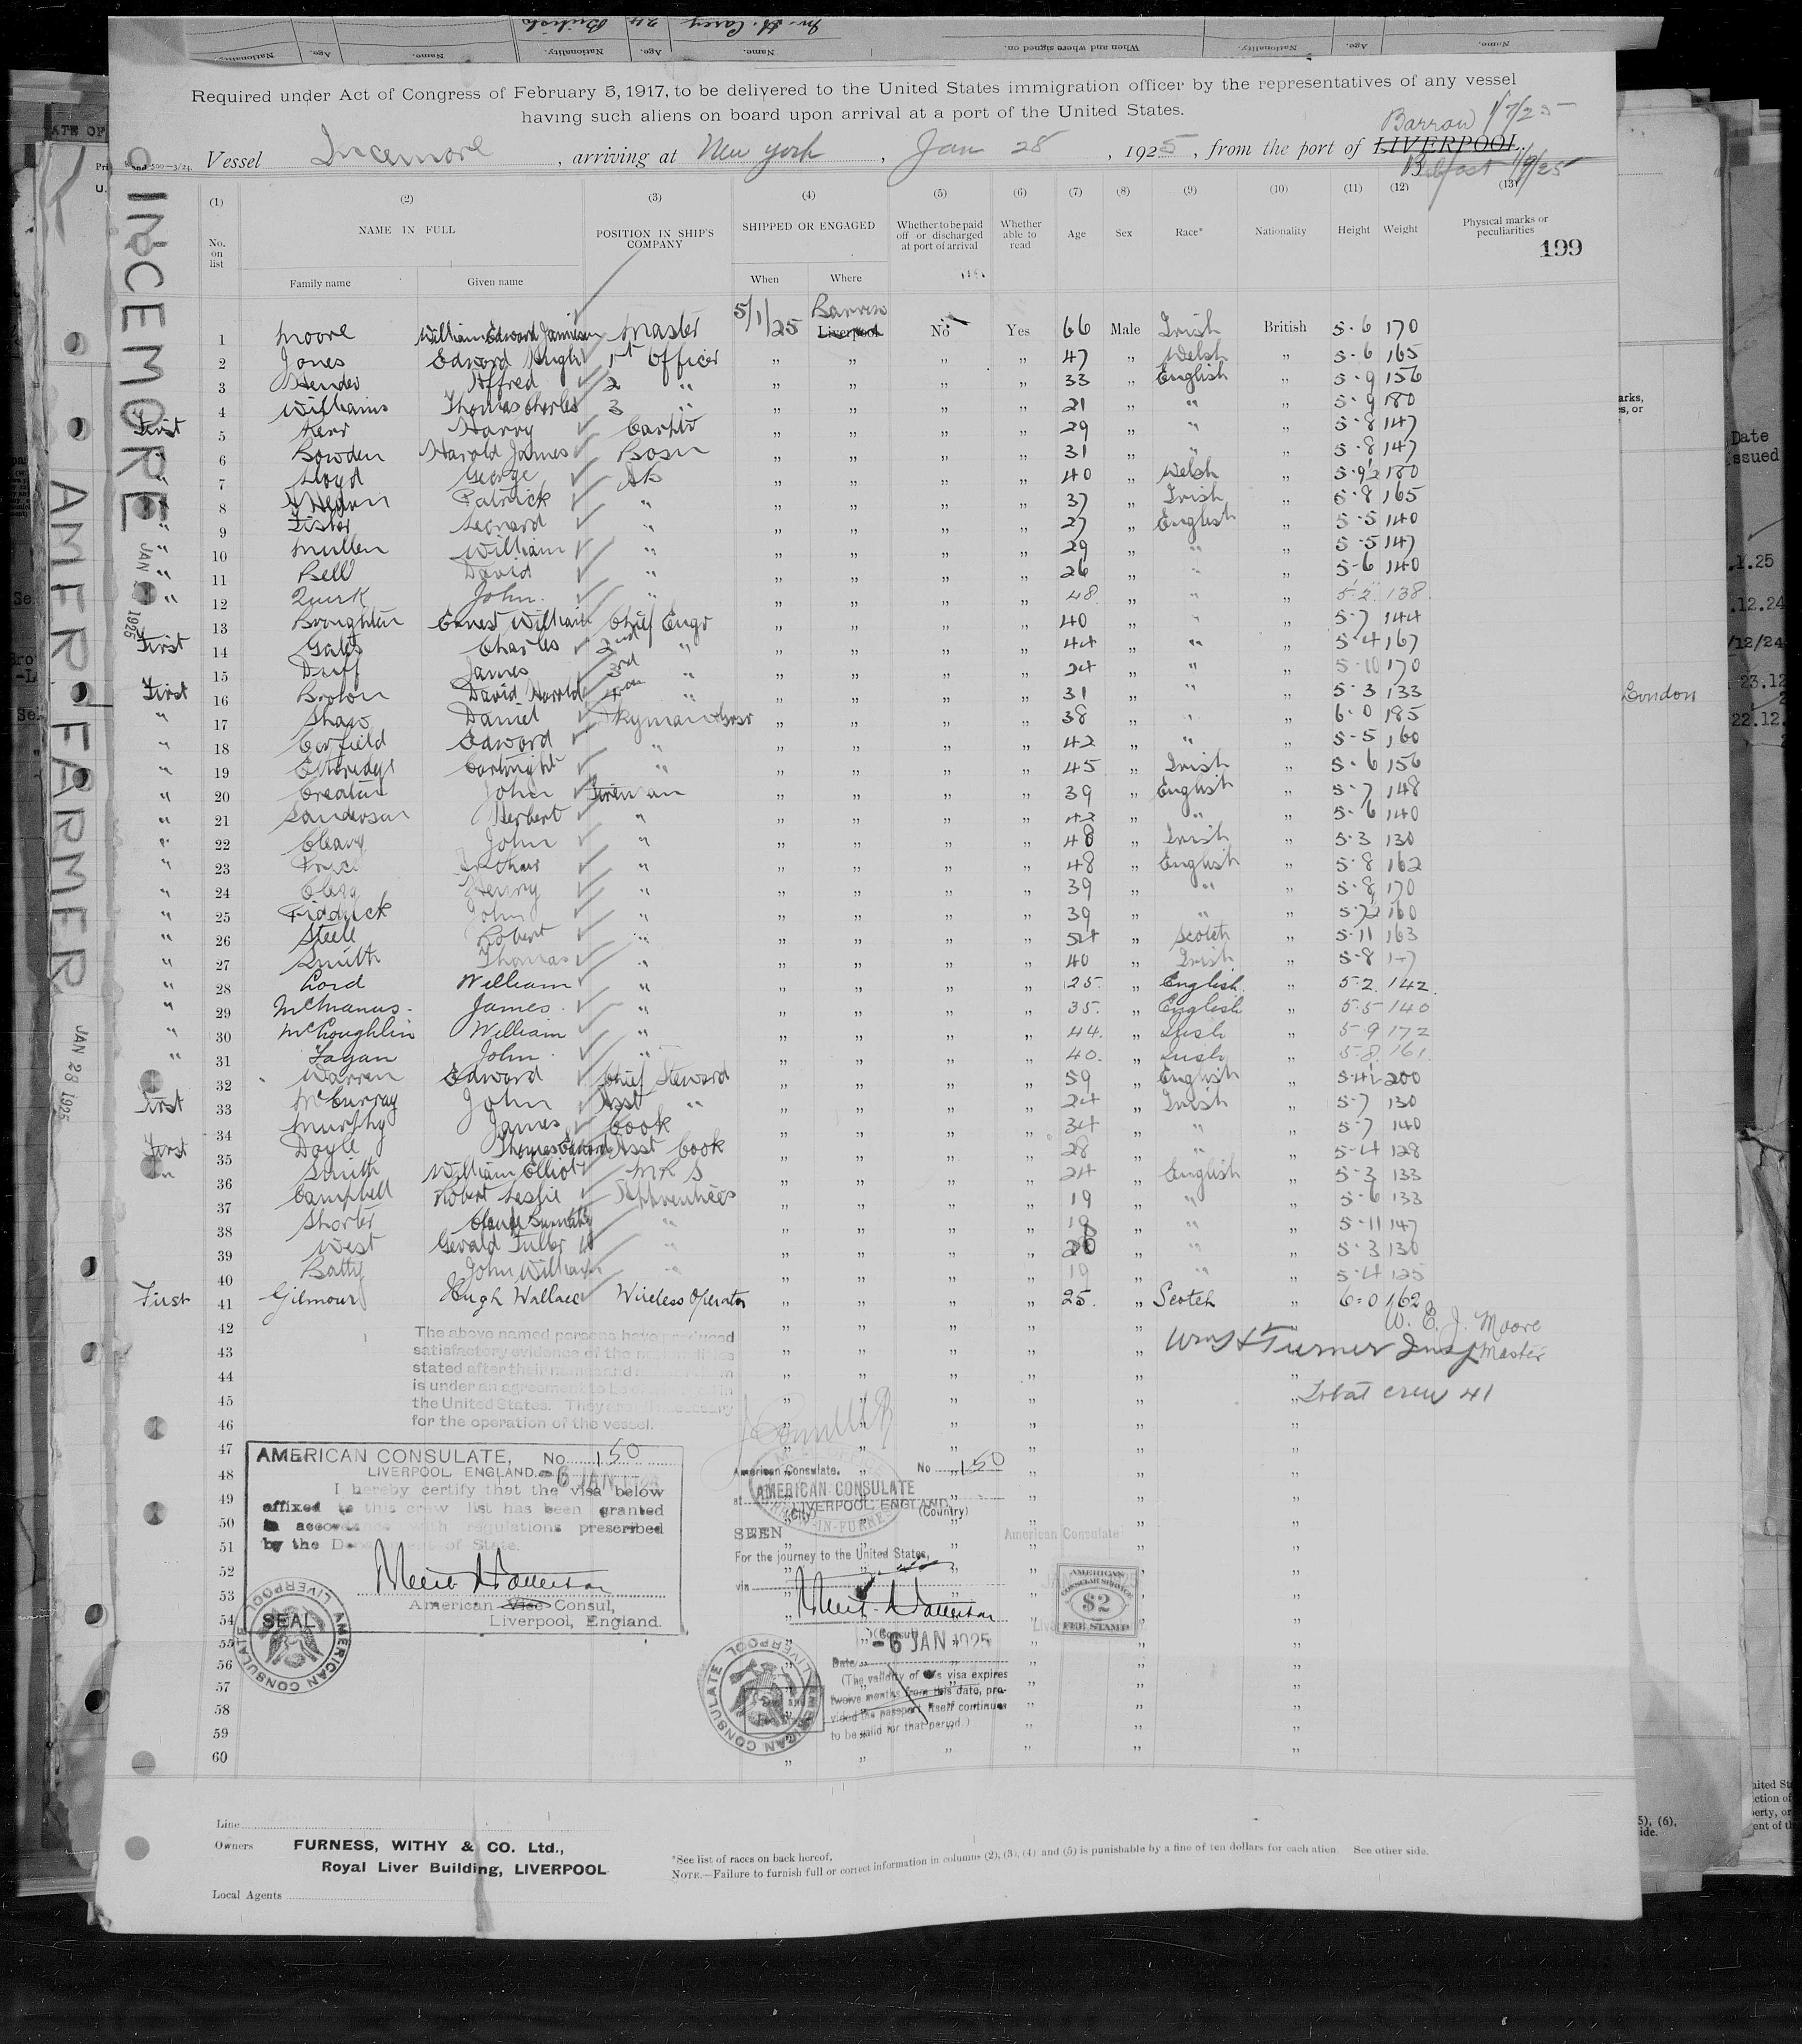 Required under Act of Congress of February 5, 1917, to be delivered to the United States immigration officer by the representatives of any vessel
having such aliens on board upon arrival at a port of the United States.
Barrow 1/7/25
Vessel Incemore, arriving at New York, Jan 28, 1925, from the port of LIVERPOOL.
Belfast 1/9/25
(1) (2) (3) (4) (5) (6) (7) (8) (9) (10) (11) (12) (13)
No. on list NAME IN FULL POSITION IN SHIP'S COMPANY SHIPPED OR ENGAGED Whether to be paid off or discharged at port of arrival Whether able to read Age Sex Race* Nationality Height Weight Physical marks or peculiarities
199
Family name Given name When Where
INCEMORE JAN 1925
AMER FARMER JAN 28 1925
1 Moore William Edward Jamieson Master 5/1/25 Barrow Liverpool No Yes 66 Male Irish British 5-6 170
2 Jones Edward Hugh 1st Officer " " " " 47 " Welsh " 5-6 165
3 Hender Alfred 2 " " " " " 33 " English " 5-9 156
4 Williams Thomas Charles 3 " " " " " 21 " " " 5-9 180
First 5 Kerr Harry Carptr " " " " 29 " " " 5-8 147
" 6 Bowden Harold James Bosn " " " " 31 " " " 5-8 147
" 7 Lloyd George AB " " " " 40 " Welsh " 5-9½ 180
" 8 Patrick " " " " " 37 " Irish " 5-8 165
" 9 Leonard " " " " " 27 " English " 5-5 140
" 10 Mullen William " " " " " 29 " " " 5-5 147
" 11 Bell David " " " " " 26 " " " 5-6 140
" 12 Quirk John " " " " " 48 " " " 5-2 138
13 Broughton Ernest William Chief Engr " " " " 40 " " " 5-7 144
First 14 Gates Charles 2nd " " " " " 44 " " " 5-4 167
15 Duff James 3rd " " " " " 24 " " " 5-10 170
First 16 David Harold 4th " " " " " 31 " " " 5-3 133
" 17 Shaw Daniel " " " " 38 " " " 6-0 185
" 18 Corfield Edward " " " " " 42 " " " 5-5 160
" 19 Etheridge Cartwright " " " " " 45 " Irish " 5-6 156
" 20 John Fireman " " " " 39 " English " 5-7 148
" 21 Sanderson Herbert " " " " " 42 " " " 5-6 140
" 22 Cleary John " " " " " 48 " Irish " 5-3 130
" 23 Price Arthur " " " " " 48 " English " 5-8 162
" 24 Clegg Henry " " " " " 39 " " " 5-8 170
" 25 Fidduck John " " " " " 39 " " " 5-7½ 160
" 26 Steele Robert " " " " " 54 " Scotch " 5-11 163
" 27 Smith Thomas " " " " " 40 " Irish " 5-8
" 28 Lord William " " " " " 25 " English " 5-2 142
" 29 McManus James " " " " " 35 " English " 5-5 140
" 30 McLoughlin William " " " " " 44 " Irish " 5-9 172
" 31 Fagan John " " " " " 40 " Irish " 5-8 161
32 Warren Edward Chief Steward " " " " 59 " English " 5-4½ 200
First 33 McCurray John Asst " " " " " 24 " Irish " 5-7 130
34 Murphy James Cook " " " " 34 " " " 5-7 140
First 35 Doyle Thomas Edward Asst Cook " " " " 28 " " " 5-4 128
" 36 Smith William Elliot M R S " " " " 24 " English " 5-3 133
37 Campbell Robert Leslie Apprentices " " " " 19 " " " 5-6 133
38 Shorter " " " " " 19 " " " 5-11 147
39 West Gerald Fuller " " " " " 20 " " " 5-3 130
40 Batty John William " " " " " 19 " " " 5-4 125
First 41 Gilmour Hugh Wallace Wireless Operator " " " " 25 " Scotch " 6-0 162
42
W. E. J. Moore
Master
43
Wm H Turner Insp
44
45
Total crew 41
46
47
48
49
50
51
52
53
54
55
56
57
58
59
60
The above named persons have produced
satisfactory evidence of the nationalities
stated after their names and
is under an agreement to be discharged in
the United States. They are necessary
for the operation of the vessel.
AMERICAN CONSULATE, No. 150
LIVERPOOL, ENGLAND. -6 JAN 1925
I hereby certify that the visa below
affixed to this crew list has been granted
in accordance with regulations prescribed
by the Department of State.
American Vice Consul,
Liverpool, England.
SEAL
AMERICAN CONSULATE LIVERPOOL
American Consulate, No 150
AMERICAN CONSULATE
at LIVERPOOL, ENGLAND.
(City) (Country)
SEEN
For the journey to the United States,
via
(Consul)
-6 JAN 1925
Date
(The validity of this visa expires
twelve months from this date, pro-
vided the passport itself continues
to be valid for that period.)
AMERICAN CONSULATE LIVERPOOL
American Consulate
AMERICAN
CONSULAR SERVICE
$2
FEE STAMP
London
Line
Owners FURNESS, WITHY & CO. Ltd.,
Royal Liver Building, LIVERPOOL
Local Agents
*See list of races on back hereof.
NOTE.—Failure to furnish full or correct information in columns (2), (3), (4) and (5) is punishable by a fine of ten dollars for each alien. See other side.